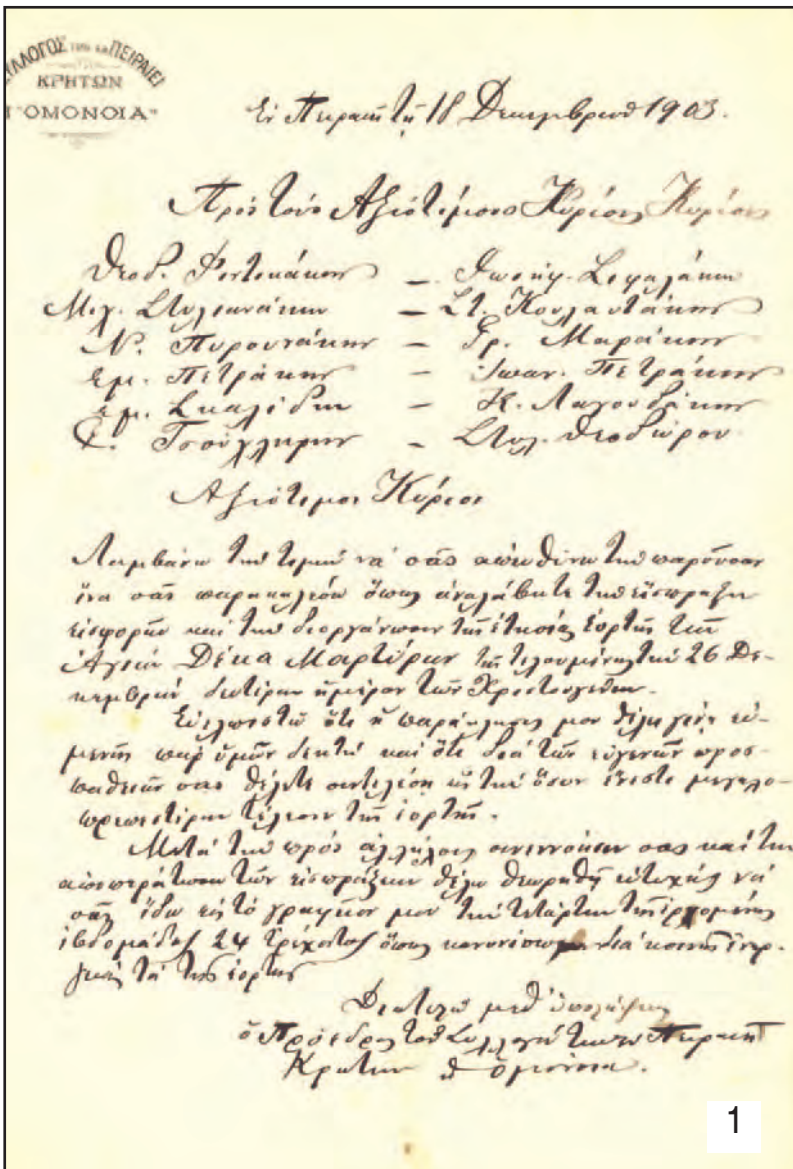 ΣΥΛΛΟΓΟΣ ΤΩΝ ΕΝ ΠΕΙΡΑΙΕΙ
ΚΡΗΤΩΝ
Η "ΟΜΟΝΟΙΑ"
Ἐν Πειραιεῖ τῇ 18 Δεκεμβρίου 1903.
Πρὸς τοὺς Ἀξιοτίμους Κυρίους Κυρίους
Θεοδ. Φουτουλάκην – Ἰωσὴφ.
Μιχ. Στυλιανάκην – Στ.
Ν. – Γρ. Μαράκην
Ἐμ. Πετράκην – Ἰωαν. Πετράκην
Ἐμ. Σκαλίδην – Κ. Λαγουδάκην
– Στυλ. Θεοδώρου
Ἀξιότιμοι Κύριοι
Λαμβάνω τὴν τιμὴν νὰ σᾶς ἀπευθύνω τὴν παροῦσαν
ἵνα σᾶς παρακαλέσω ὅπως ἀναλάβητε τὴν εἴσπραξιν
εἰσφορῶν καὶ τὴν διοργάνωσιν τῆς ἐτησίας ἑορτῆς τῶν
Ἁγίων Δέκα Μαρτύρων τῆς τελουμένης τὴν 26 Δε-
κεμβρίου δευτέραν ἡμέραν τῶν Χριστουγέννων.
Εὐελπιστῶ ὅτι ἡ παράκλησίς μου θέλει γείνῃ εὐ-
μενῶς παρ' ὑμῶν δεκτὴ καὶ ὅτι διὰ τῶν εὐγενῶν προσ-
παθειῶν σας θέλετε συντελέσῃ εἰς τὴν ὅσον ἔνεστι μεγαλο-
πρεπεστέραν τέλεσιν τῆς ἑορτῆς.
Μετὰ τὴν πρὸς ἀλλήλους συνεννόησίν σας καὶ τὴν
ἀποπεράτωσιν τῶν εἰσπράξεων θέλω θεωρηθῇ εὐτυχὴς νὰ
σᾶς ἴδω εἰς τὸ γραφεῖον μου τὴν Τετάρτην τῆς ἐρχομένης
ἑβδομάδος 24 τρέχοντος ὅπως κανονίσωμεν διὰ κοινῆς ἐνερ-
γείας τὰ τῆς ἑορτῆς
Διατελῶ μεθ' ὑπολήψεως
ὁ Πρόεδρος τοῦ Συλλόγου τῶν ἐν Πειραιεῖ
Κρητῶν ἡ ὁμόνοια.
1